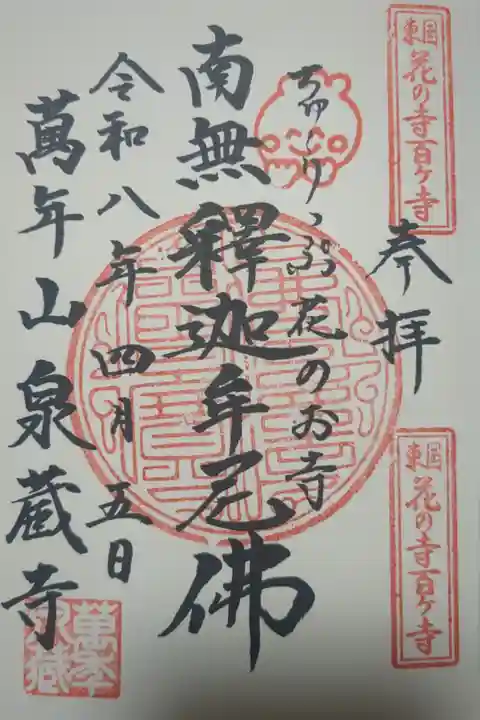 東国花の寺百ヶ寺
奉拝
東国花の寺百ヶ寺
ちゅーりっぷ花のお寺
南無釋迦牟尼佛
令和八年四月五日
萬年山泉蔵寺